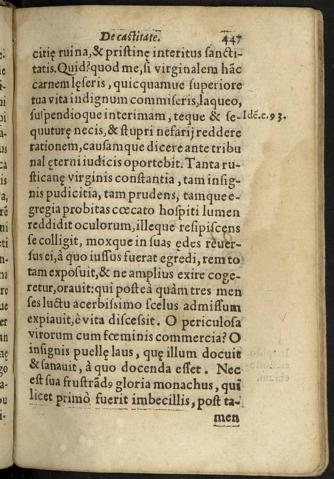 De castitate. 447
citię ruina, & pristinę interitus sancti-
tatis. Quid? quod me, si virginalem hāc
carnem lęseris, quicquamue superiore
tua vita indignum commiseris, laqueo,
suspendioque interimam, teque & se-
Idē.c.93.
quuturę necis, & stupri nefarij reddere
rationem, causamque dicere ante tribu
nal ęterni iudicis oportebit. Tanta ru-
sticanę virginis constantia, tam insig-
nis pudicitia, tam prudens, tamque e-
gregia probitas cœcato hospiti lumen
reddidit oculorum, illeque resipiscens
se colligit, moxque in suas ędes reuer-
sus ei, à quo iussus fuerat egredi, rem to
tam exposuit, & ne amplius exire coge-
retur, orauit: qui posteà quàm tres men
ses luctu acerbissimo scelus admissum
expiauit, è vita discessit. O periculosa
virorum cum fœminis commercia? O
insignis puellę laus, quę illum docuit
& sanauit, à quo docenda esset. Nec
est sua frustrādꝰ gloria monachus, qui
licet primò fuerit imbecillis, post ta-
men